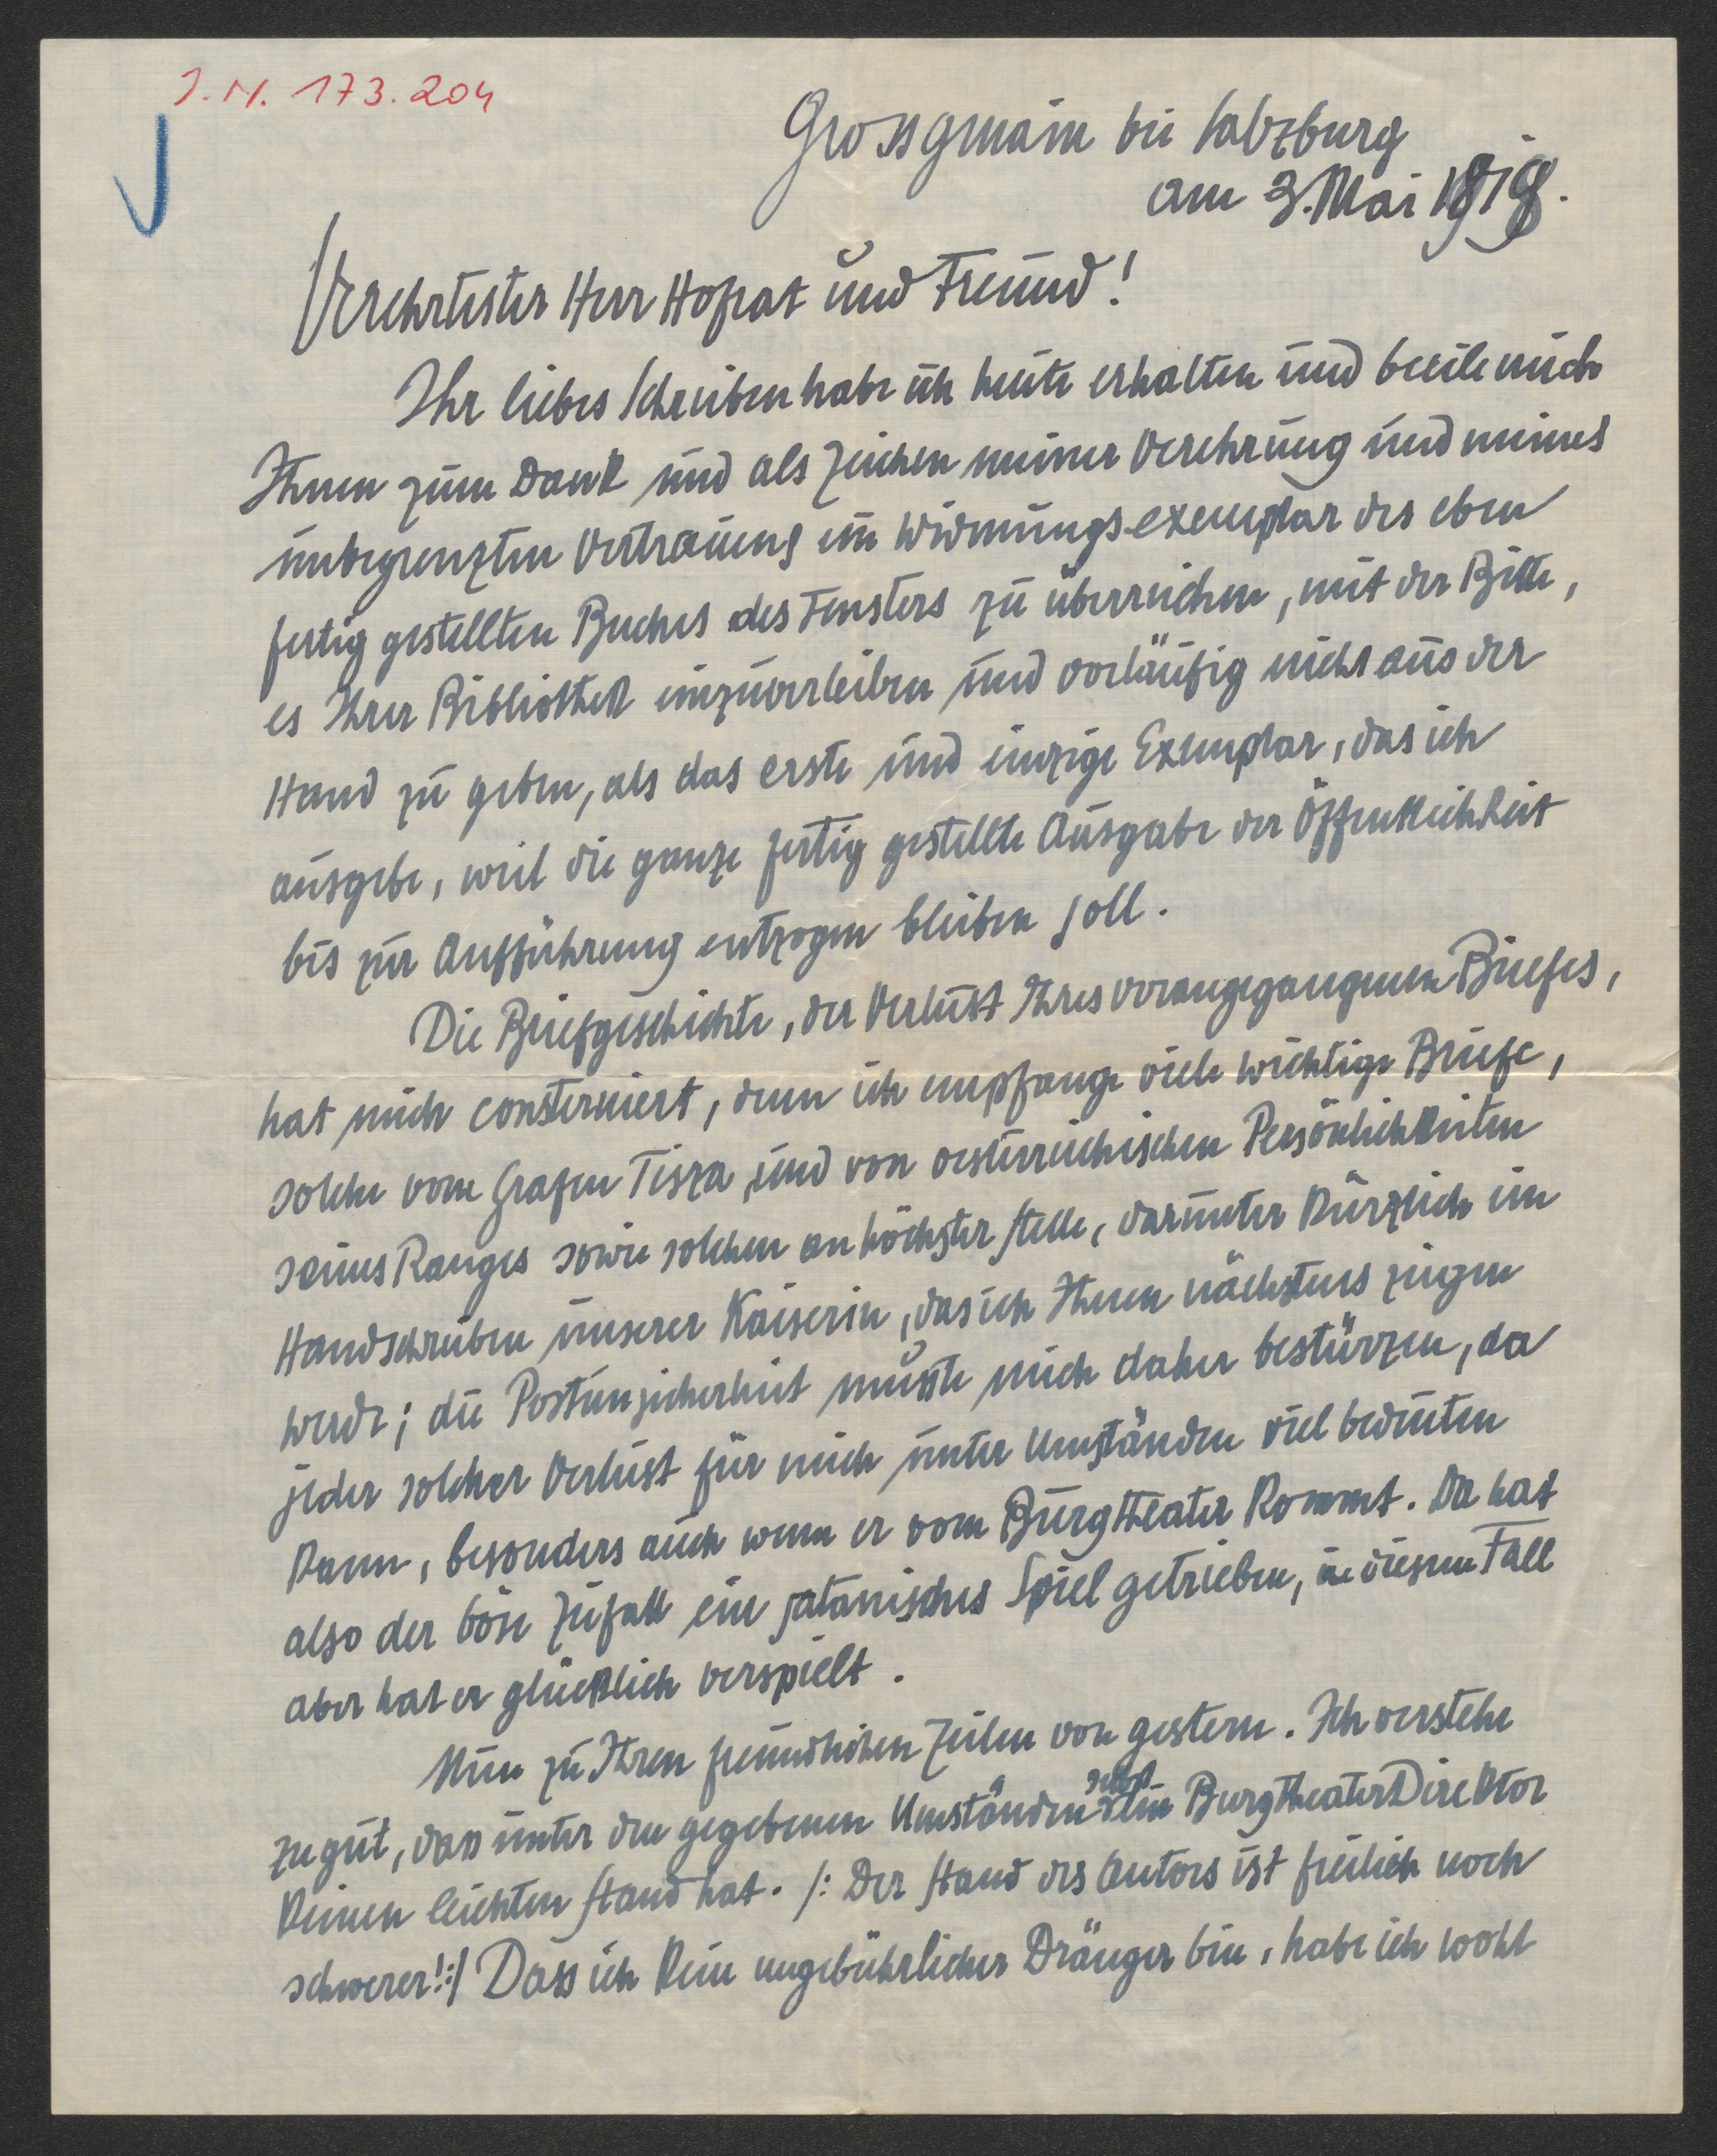 J.N. 173.204
Grossgmain bei Salzburg
am 3. Mai 1918.
Verehrtester Herr Hofrat und Freund!
Ihr liebes Schreiben habe ich heute erhalten und beeile mich
Ihnen zum Dank und als Zeichen meiner Verehrung und meines
unbegrenzten Vertrauens ein Widmungsexemplar des eben
fertig gestellten Buches des Fensters zu überreichen, mit der Bitte,
es Ihrer Bibliothek einzuverleiben und vorläufig nicht aus der
Hand zu geben, als das erste und einzige Exemplar, das ich
ausgebe, weil die ganze fertig gestellte Ausgabe der Öffentlichkeit
bis zur Aufführung entzogen bleiben soll.
Die Briefgeschichte, der Verlust Ihres vorangegangenen Briefes,
hat mich consterniert, denn ich empfange viele wichtige Briefe,
solche vom Grafen Tisza und von oesterreichischen Persönlichkeiten
seines Ranges sowie solchen an höchster Stelle, darunter kürzlich ein
Handschreiben unserer Kaiserin, das ich Ihnen nächstens zeigen
werde; die Postunsicherheit müsste mich daher bestürzen, da
jeder solcher Verlust für mich unter Umständen viel bedeuten
kann, besonders auch wenn er vom Burgtheater kommt. Da hat
also der böse Zufall ein satanisches Spiel getrieben, in diesem Fall
aber hat er glücklich verspielt.
Nun zu Ihren freundlichen Zeilen von gestern. Ich verstehe
zu gut, dass unter den gegebenen Umständen selbst ein BurgtheaterDirektor
keinen leichten Stand hat. /: Der Stand des Autors ist freilich noch
schwerer! :/ Dass ich kein ungebührlicher Dränger bin, habe ich wohl